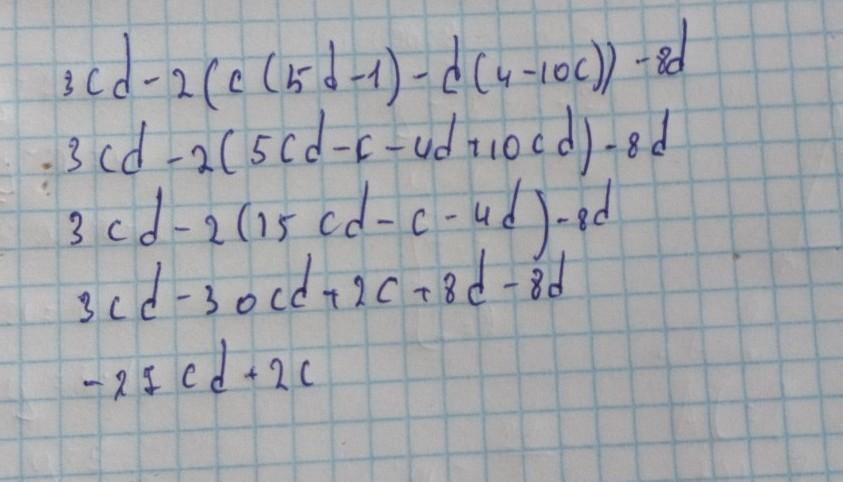 3cd-2(c(5d-1)-d(4-10c))-8d
3cd-2(5cd-c-4d+10cd)-8d
3cd-2(15cd-c-4d)-8d
3cd-30cd+2c+8d-8d
-27cd+2c